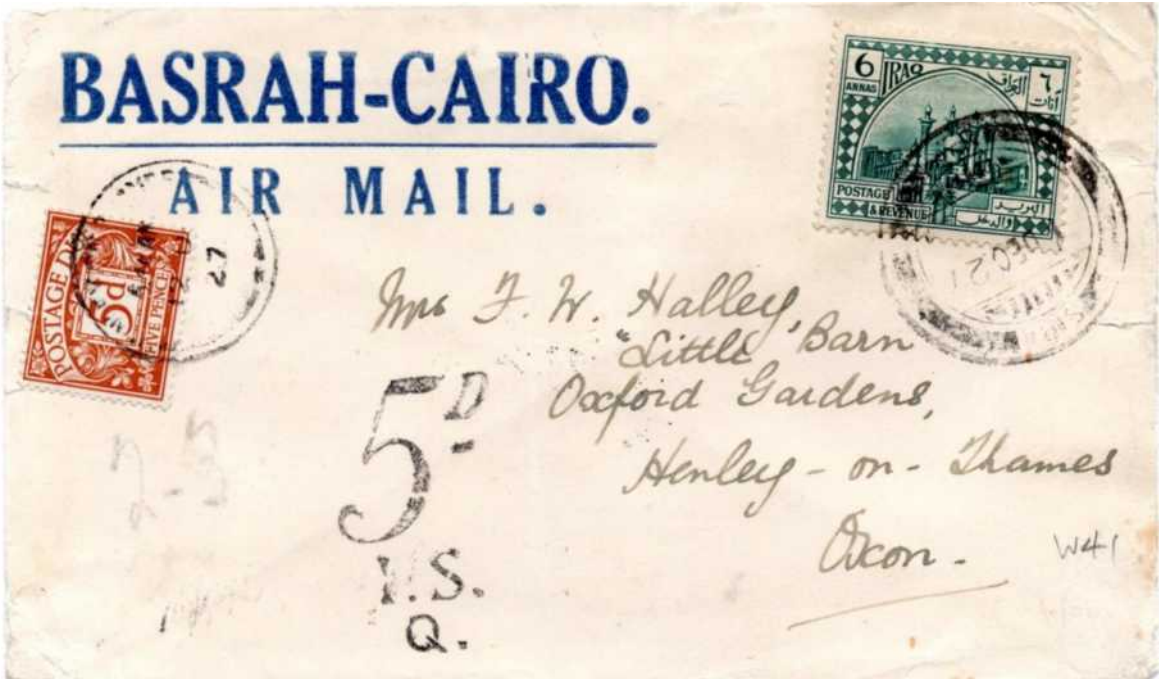 BASRAH-CAIRO.
AIR MAIL.
6
ANNAS
IRAQ
العراق
٦
آنات
POSTAGE
& REVENUE
البريد
والدخل
DEC 27
POSTAGE DUE
5D
FIVE PENCE
27
Mrs F. W. Halley,
"Little Barn
Oxford Gardens,
Henley-on-Thames
Oxon.
W41
2-3
5D
I.S.
Q.